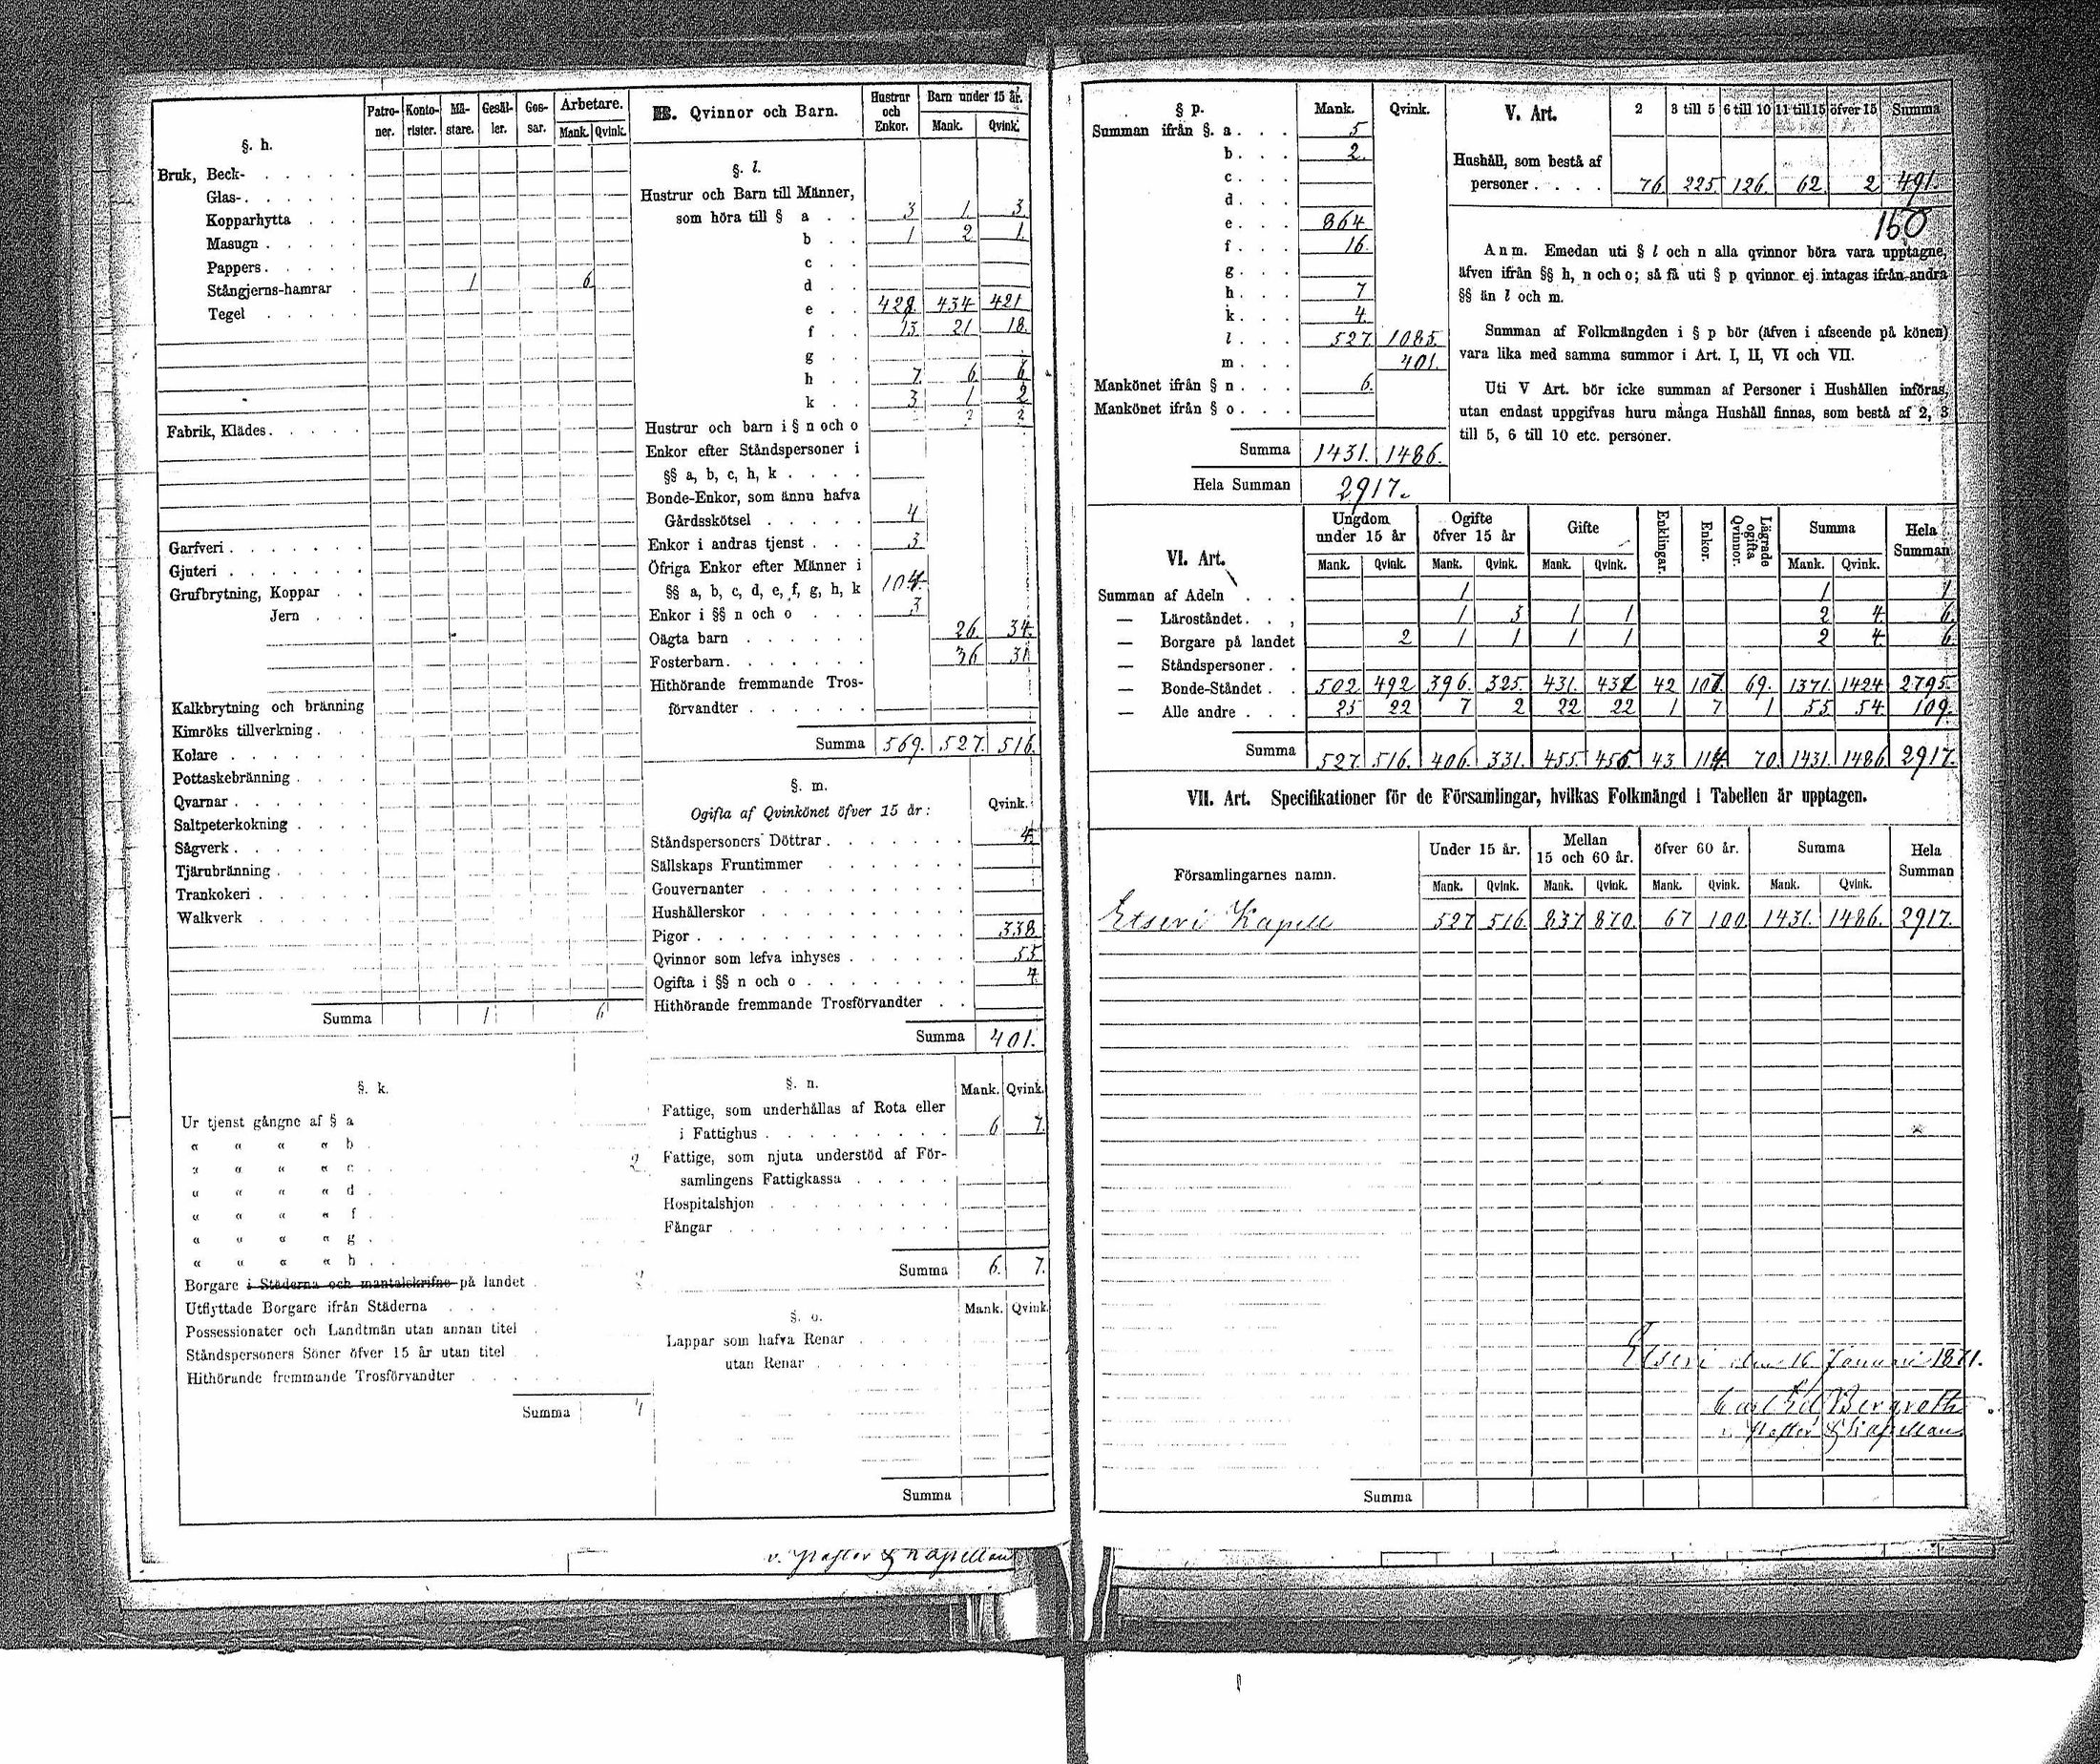 §. h.
Patro-ner. Konto-rister. Mä-stare. Gesäl-ler. Gos-sar. Arbetare. Mank. Qvink.
Bruk, Beck-
Glas-
Kopparhytta
Masugn
Pappers
Stångjerns-hamrar 1 6
Tegel
Fabrik, Klädes
Garfveri
Gjuteri
Grufbrytning, Koppar
Jern
Kalkbrytning och bränning
Kimröks tillverkning
Kolare
Pottaskebränning
Qvarnar
Saltpeterkokning
Sågverk
Tjärubränning
Trankokeri
Walkverk
Summa 1 6
§. k.
Ur tjenst gångne af § a
“ “ “ “ b
“ “ “ “ c 2
“ “ “ “ d
“ “ “ “ f
“ “ “ “ g
“ “ “ “ h
Borgare i Städerna och mantalskrifne på landet 2
Utflyttade Borgare ifrån Städerna
Possessionater och Landtmän utan annan titel
Ståndspersoners Söner öfver 15 år utan titel
Hithörande fremmande Trosförvandter
Summa 4
Qvinnor och Barn. Hustrur och Enkor. Barn under 15 år. Mank. Qvink.
§. l.
Hustrur och Barn till Männer,
som höra till § a 3 1 3
b 1 2 1
c
d
e 428 434 421
f 13 21 18
g
h 7 6 6
k 3 1 2
Hustrur och barn i § n och o
Enkor efter Ståndspersoner i
§§ a, b, c, h, k
Bonde-Enkor, som ännu hafva
Gårdsskötsel 4
Enkor i andras tjenst 3
Öfriga Enkor efter Männer i
§§ a, b, c, d, e, f, g, h, k 104
Enkor i §§ n och o 3
Oägta barn 26 34
Fosterbarn 36 31
Hithörande fremmande Tros-
förvandter
Summa 569. 527. 516.
§. m.
Ogifta af Qvinkönet öfver 15 år: Qvink.
Ståndspersoners Döttrar 4
Sällskaps Fruntimmer
Gouvernanter
Hushållerskor
Pigor 338
Qvinnor som lefva inhyses 55
Ogifta i §§ n och o 4
Hithörande fremmande Trosförvandter
Summa 401.
§. n. Mank. Qvink.
Fattige, som underhållas af Rota eller
i Fattighus 6 7
Fattige, som njuta understöd af För-
samlingens Fattigkassa
Hospitalshjon
Fångar
Summa 6. 7.
§. o. Mank. Qvink.
Lappar som hafva Renar
utan Renar
Summa
v. Pastor & Kapellan
§ p. Mank. Qvink.
Summan ifrån §. a 5
b 2.
c
d
e 864
f 16.
g
h 7
k 4.
l 527 1085.
m 401.
Mankönet ifrån § n 6.
Mankönet ifrån § o
Summa 1431. 1486.
Hela Summan 2917.
V. Art. 2 3 till 5 6 till 10 11 till 15 öfver 15 Summa
Hushåll, som bestå af
personer 76. 225. 126. 62. 2 491.
150
Anm. Emedan uti § l och n alla qvinnor böra vara upptagne,
äfven ifrån §§ h, n och o; så få uti § p qvinnor ej intagas ifrån andra
§§ än l och m.
Summan af Folkmängden i § p bör (äfven i afseende på könen)
vara lika med samma summor i Art. I, II, VI och VII.
Uti V Art. bör icke summan af Personer i Hushållen införas,
utan endast uppgifvas huru många Hushåll finnas, som bestå af 2, 3
till 5, 6 till 10 etc. personer.
VI. Art. Ungdom under 15 år Ogifte öfver 15 år Gifte Enklingar. Enkor. Lägrade ogifta Qvinnor. Summa Hela Summan
Mank. Qvink. Mank. Qvink. Mank. Qvink. Mank. Qvink.
Summan af Adeln 1 1 1
— Läroståndet 1 3 1 1 2 4 6
— Borgare på landet 2 1 1 1 1 2 4 6
— Ståndspersoner
— Bonde-Ståndet 502 492 396. 325. 431. 431 42 107 69. 1371. 1424 2795.
— Alle andre 25 22 7 2 22 22 1 7 1 55. 54. 109.
Summa 527. 516. 406. 331. 455. 455. 43. 114 70. 1431. 1486 2917.
VII. Art. Specifikationer för de Församlingar, hvilkas Folkmängd i Tabellen är upptagen.
Församlingarnes namn. Under 15 år. Mellan 15 och 60 år. öfver 60 år. Summa Hela Summan
Mank. Qvink. Mank. Qvink. Mank. Qvink. Mank. Qvink.
Etseri Kapell 527 516. 837 870. 67 100 1431. 1486. 2917.
Etseri den 16 Januari 1871.
Carl Ed Bergroth
v. Pastor & Kapellan
Summa